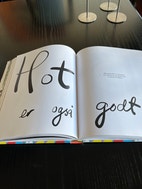 Hot
er også godt